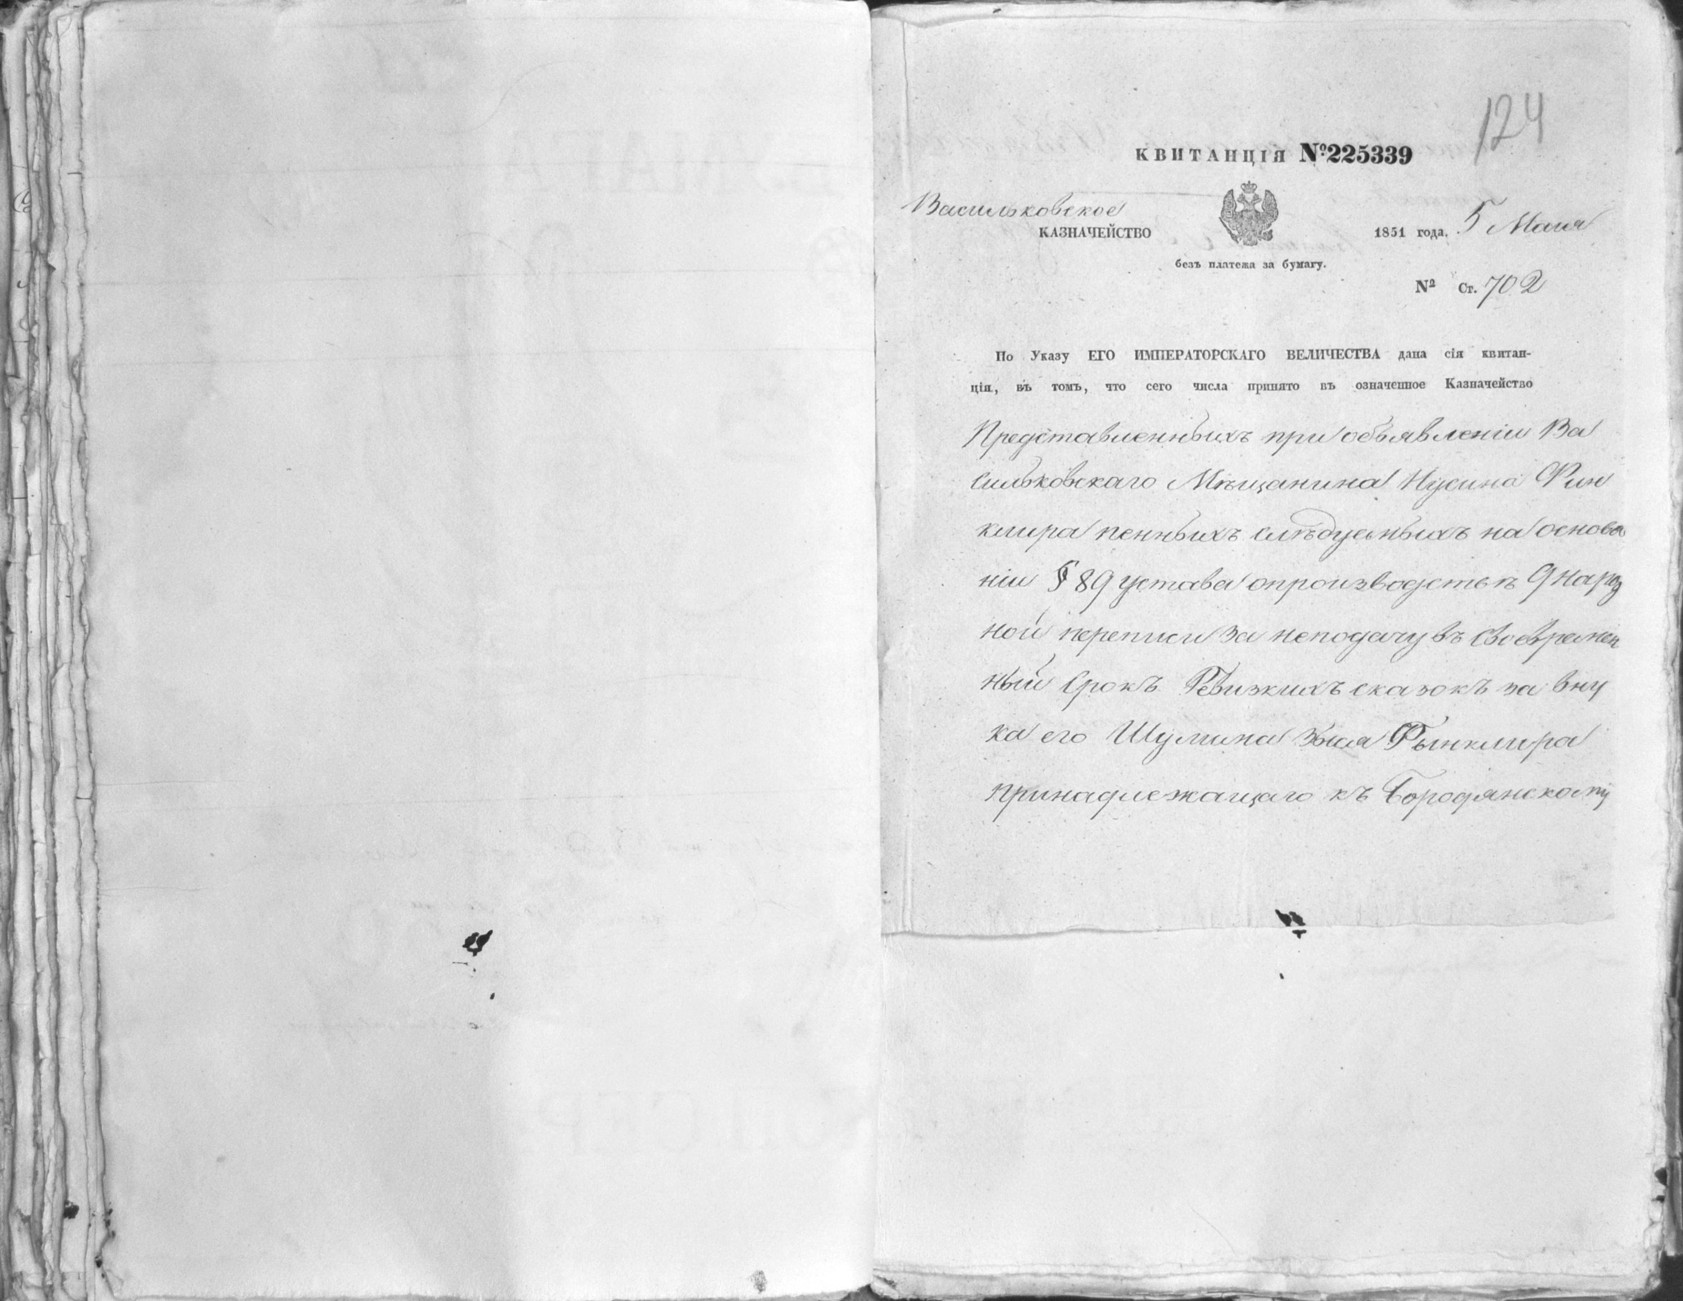 124
КВИТАНЦІЯ №225339
Васильковское
КАЗНАЧЕЙСТВО
1851 года. 5 Маия
безъ платежа за бумагу.
№ Ст. 702
По Указу ЕГО ИМПЕРАТОРСКАГО ВЕЛИЧЕСТВА дана сія квитан-
ція, въ томъ, что сего числа принято въ означенное Казначейство
Представленныхъ при объявленіи Ва
сильковскаго Мѣщанина Нусина Фин
клира пенныхъ слѣдуемыхъ на основа
ніи § 89 устава опроизводствѣ 9 народ
ной переписи за неподачу въ своевремен
ный срокъ Ревизкихъ сказокъ за вну
ка его Шулима Фынклира
принадлежащаго къ Бородянскому